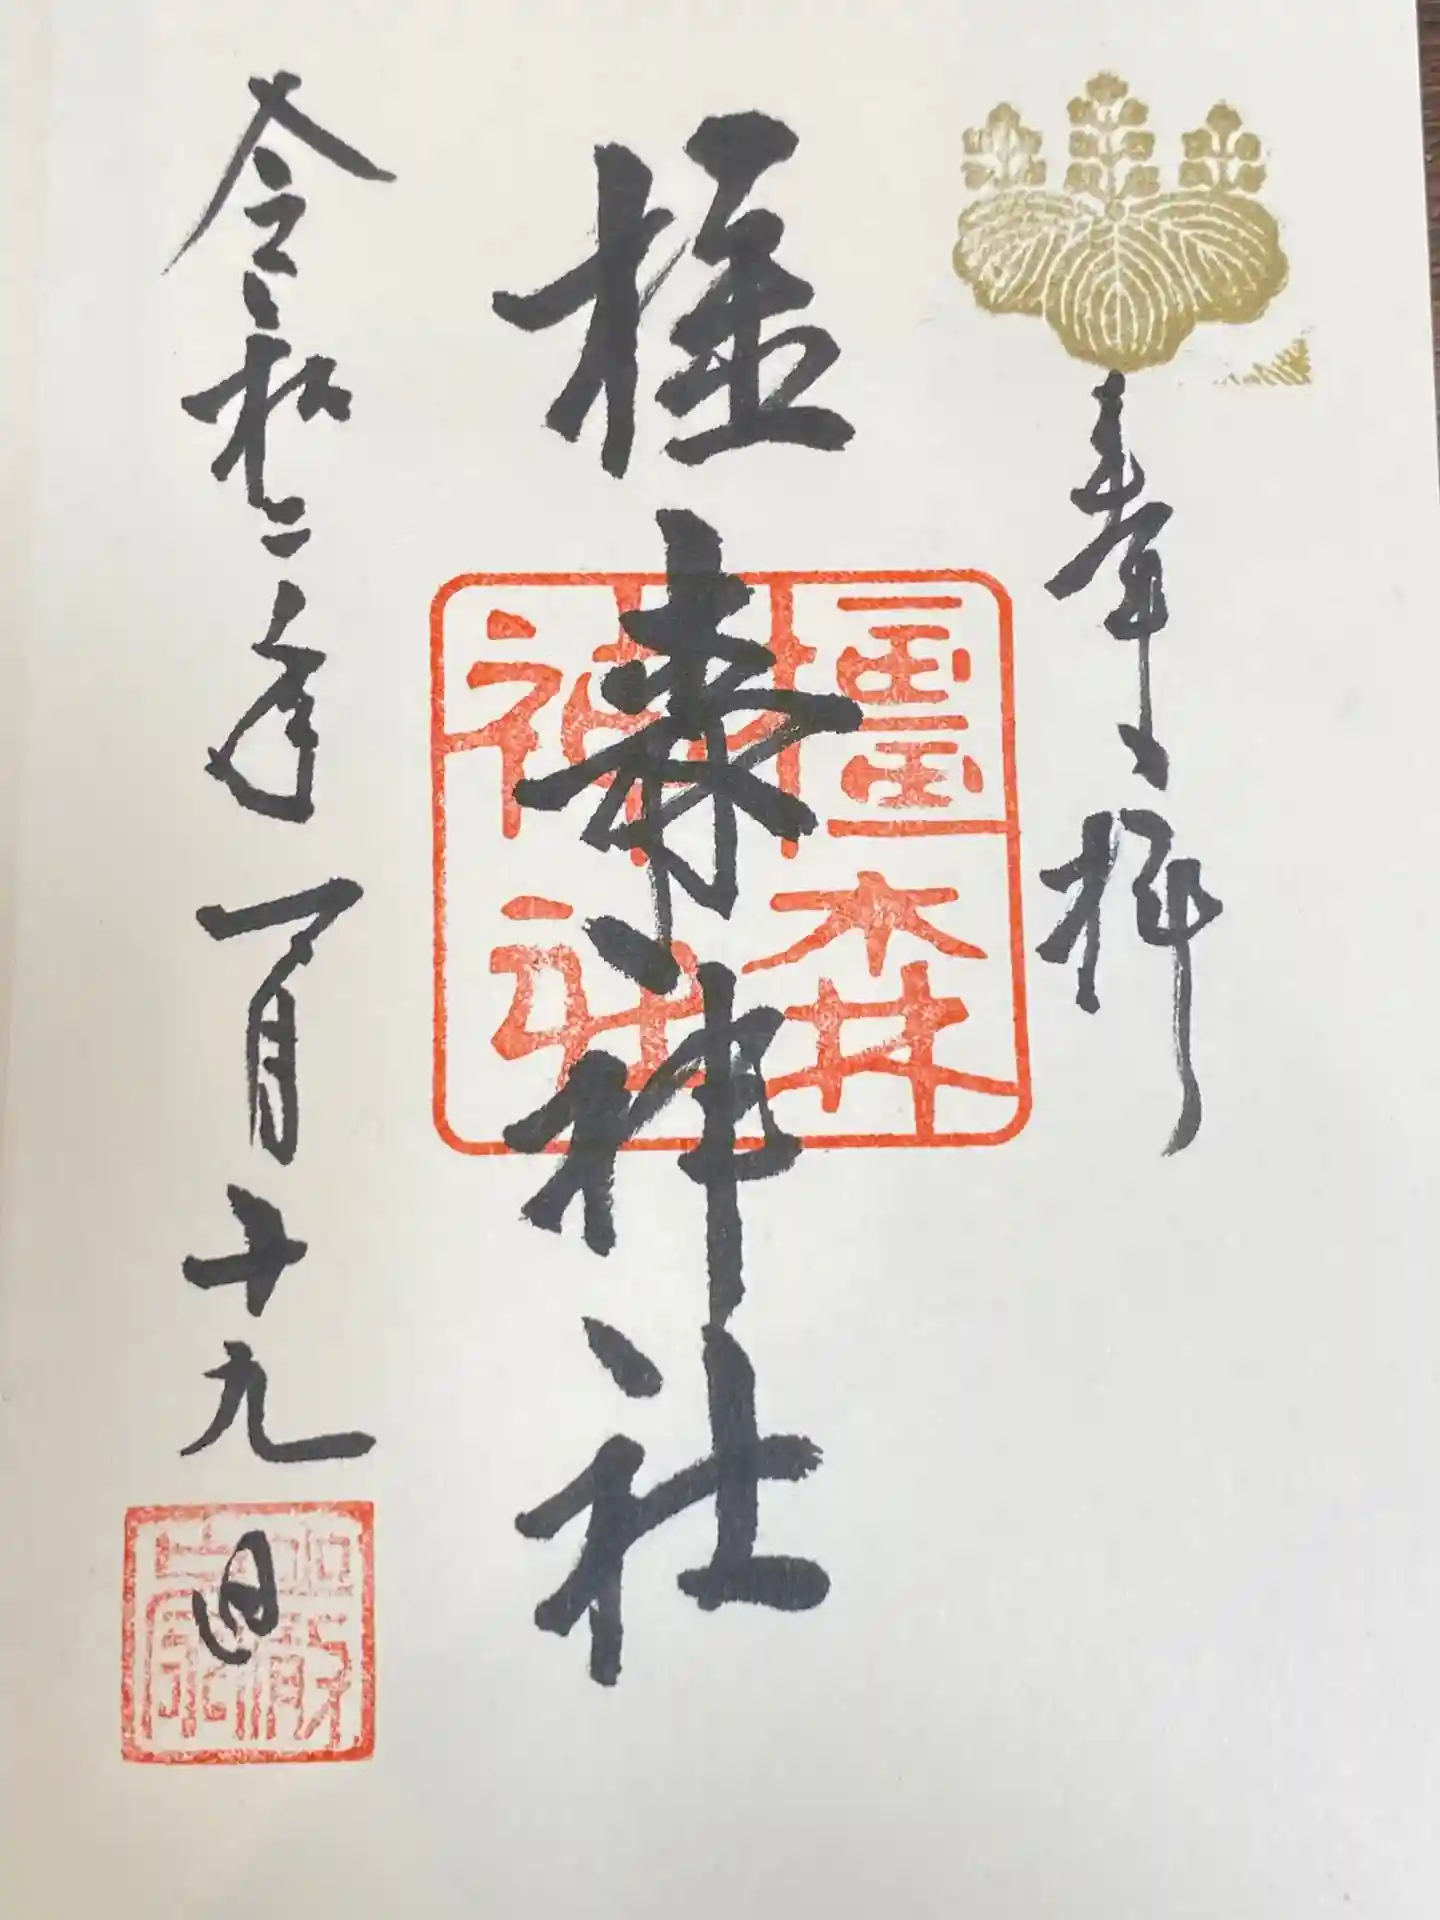 奉拝
橿森神社
橿森神社
令和二年一月十九日